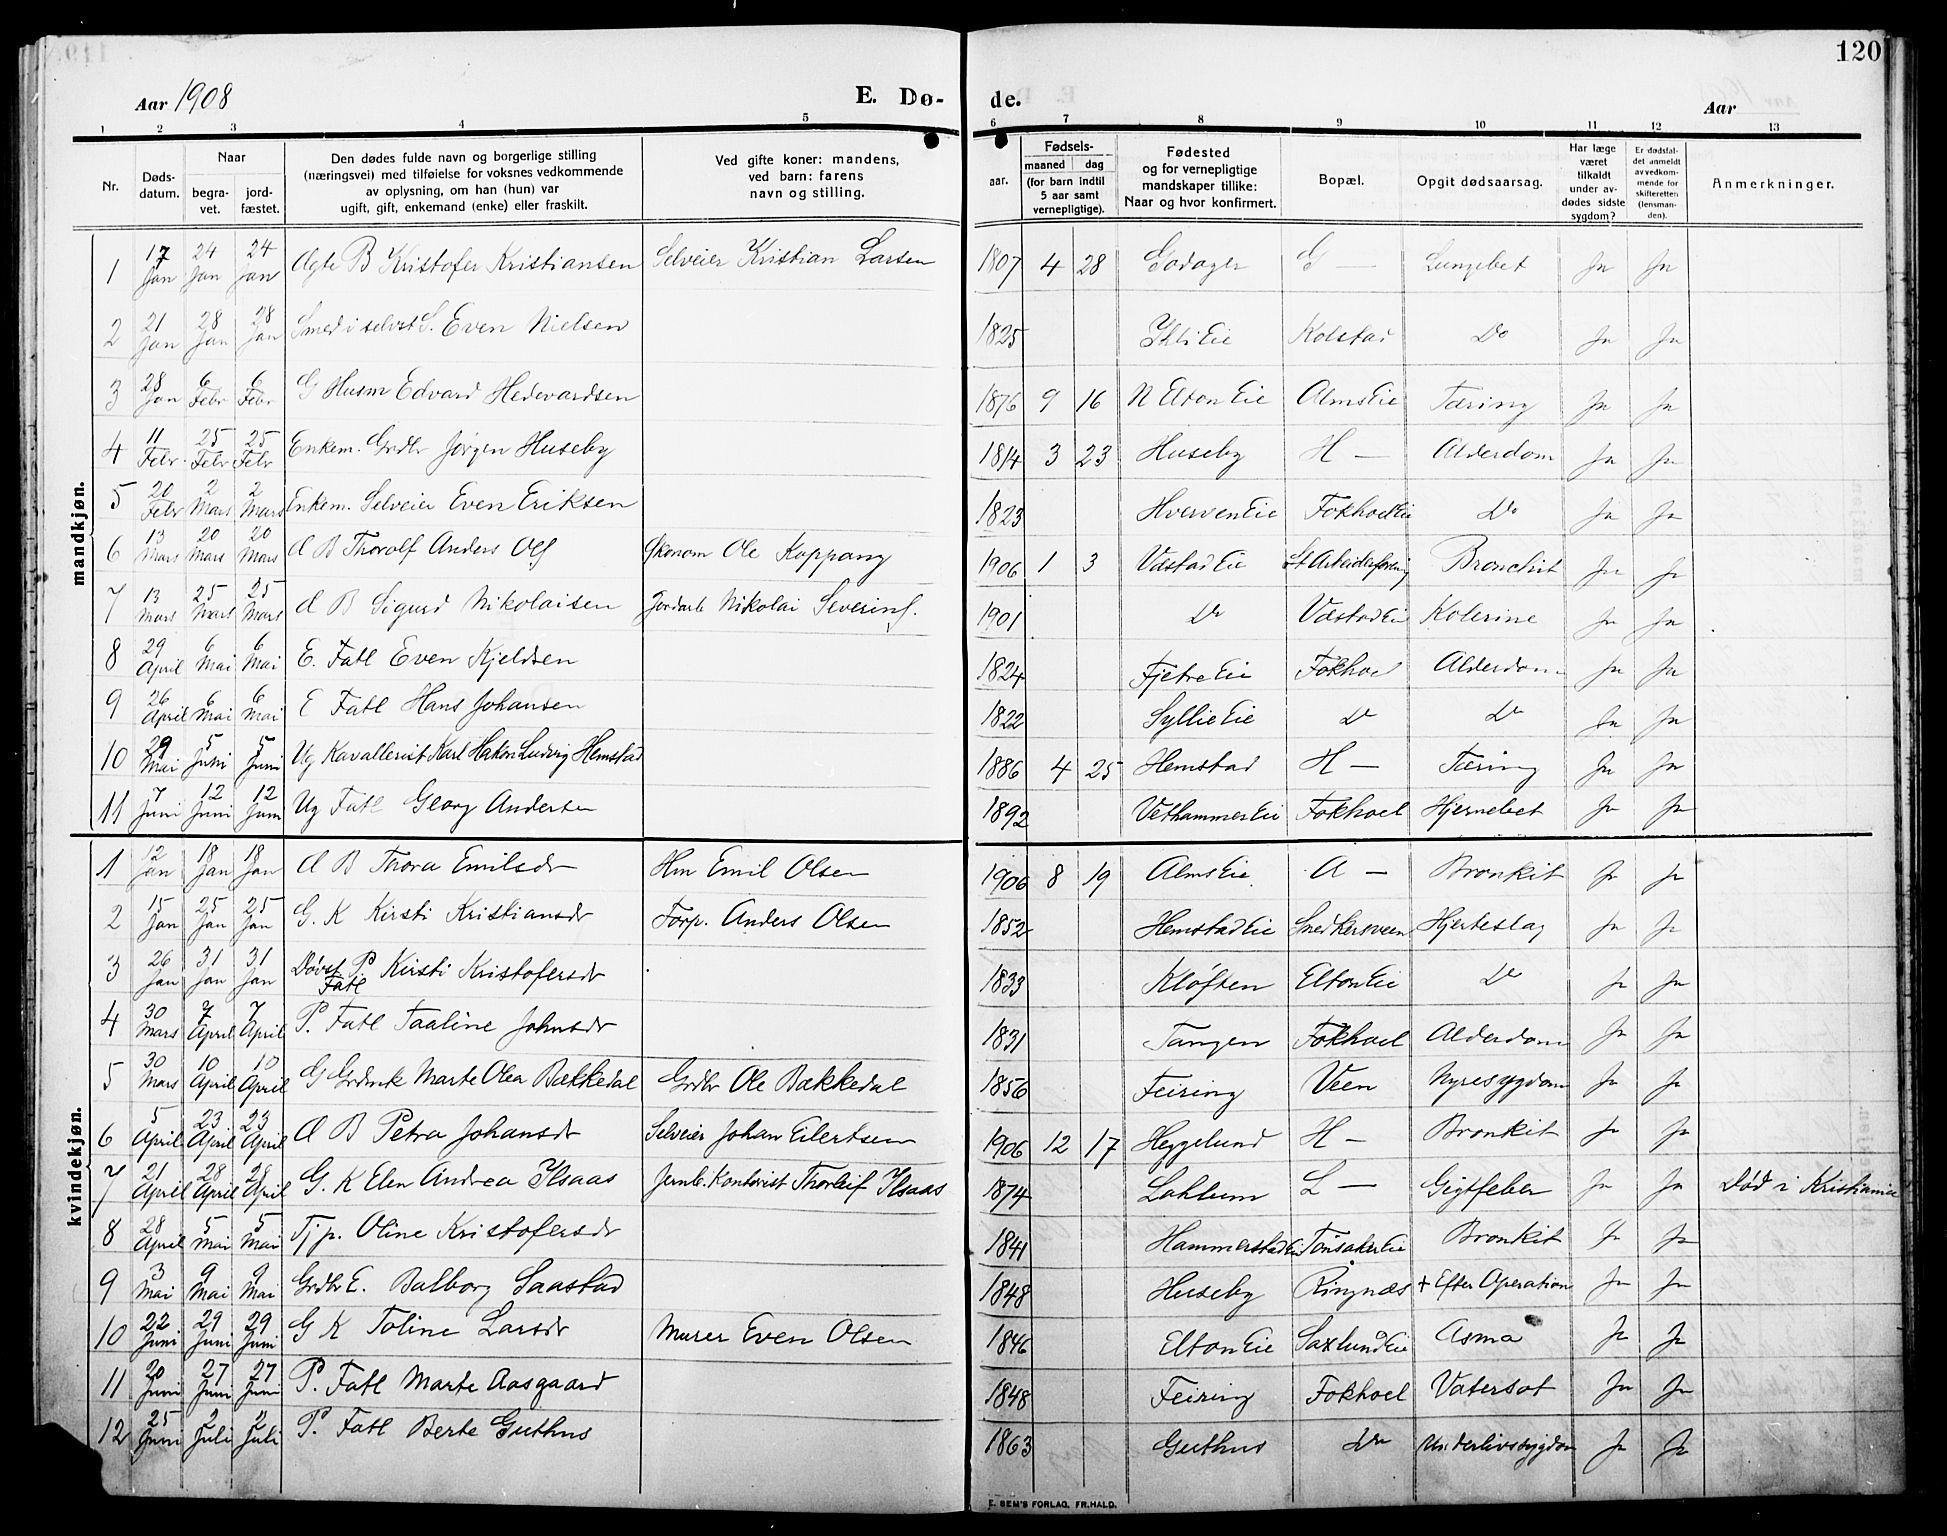 120
Aar 1908
E. Dø-
de.
Aar
1 2 3 4 5 6 7 8 9 10 11 12 13
Nr.
Døds-
datum.
Naar
begra-
vet.
jord-
fæstet.
Den dødes fulde navn og borgerlige stilling
(næringsvei) med tilføielse for voksnes vedkommende
av oplysning, om han (hun) var
ugift, gift, enkemand (enke) eller fraskilt.
Ved gifte koner: mandens,
ved barn: farens
navn og stilling.
Fødsels-
aar.
maaned dag
(for barn indtil
5 aar samt
vernepligtige).
Fødested
og for vernepligtige
mandskaper tillike:
Naar og hvor konfirmert.
Bopæl.
Opgit dødsaarsag.
Har læge
været
tilkaldt
under av-
dødes sidste
sygdom?
Er dødsfal-
det anmeldt
av vedkom-
mende for
skifteretten
(lensman-
den).
Anmerkninger.
mandkjøn.
1 17 Jan 24 Jan 24 Jan Agte B Kristofer Kristiansen Selveier Kristian Larsen 1807 4 28 Godager G — Lungebet Ja Ja
2 21 Jan 28 Jan 28 Jan Smed i selvst S. Even Nielsen 1825 Ihli Eie Kolstad Do Ja Ja
3 28 Jan 6 Febr 6 Febr G Husm Edvard Hedevardsen 1876 9 16 N Elton Eie Alms Eie Tæring Ja Ja
4 11 Febr. 25 Febr 25 Febr Enkem. Grdbr Jørgen Huseby 1814 3 23 Huseby H — Alderdom Ja Ja
5 20 Febr 2 Mars 2 Mars Enkem. Selveier Even Eriksen 1823 Hverven Eie Fokhoel Eie Do Ja Ja
6 13 Mars 20 Mars 20 Mars A B Thorolf Anders Ols Økonom Ole Koppang 1906 1 3 Vastad Eie St Arbeiderforening Bronchit Ja Ja
7 13 Mars 25 Mars 25 Mars A B Sigurd Nikolaisen Jordarb Nikolai Severins. 1901 Do Vastad Eie Kolerine Ja Ja
8 29 April 6 Mai 6 Mai E. Fatl Even Kjeldsen 1824 Fjetre Eie Fokhoel Alderdom Ja Ja
9 26 April 6 Mai 6 Mai E Fatl Hans Johansen 1822 Syllie Eie Do Do Ja Ja
10 29 Mai 5 Juni 5 Juni Ug Kavallerist Karl Hakon Ludvig Hemstad 1886 4 25 Hemstad H — Tæring Ja Ja
11 7 Juni 12 Juni 12 Juni Ug Fatl Georg Andersen 1892 Vethammer Eie Fokhoel Hjernebet Ja Ja
kvindekjøn.
1 12 Jan 18 Jan 18 Jan A B Thora Emilsdr Hm Emil Olsen 1906 8 19 Alms Eie A — Bronkit Ja Ja
2 15 Jan 25 Jan 25 Jan G. K Kirsti Kristiansdr Forp. Anders Olsen 1852 Hemstad Eie Snedkersveen Hjerteslag Ja Ja
3 26 Jan 31 Jan 31 Jan Døvst P. Kirsti Kristofersdr 1833 Kløften Elton Eie Do Ja Ja
Fatl
4 30 Mars 7 April 7 April P. Fatl Taaline Johnsdr 1831 Tangen Fokhoel Alderdom Ja Ja
5 30 Mars 10 April 10 April G Grdmk Marte Olea Bækkedal Grdbr Ole Bækkedal 1856 Feiring Veen Nyresygdom Ja Ja
6 5 April 23 April 23 April A B Petra Johansdr Selveier Johan Eilertsen 1906 12 17 Heggelund H — Bronkit Ja Ja
7 21 April 28 April 28 April G. K Elen Andrea Ilsaas Jernb. Kontorist Thorleif Ilsaas 1874 Lahlum L — Gigtfeber Ja Ja Død i Kristiania
8 28 April 5 Mai 5 Mai Tjp. Oline Kristofersdr 1841 Hammerstad Eie Tønsaker Eie Bronkit Ja Ja
9 3 Mai 9 Mai 9 Mai Grdbr E. Valborg Saastad 1848 Huseby Ringnæs + Efter Operation Ja Ja
10 22 Juni 29 Juni 29 Juni G K Toline Larsdr Murer Even Olsen 1846 Elton Eie Saxlund Eie Asma Ja Ja
11 20 Juni 27 Juni 27 Juni P. Fatl Marte Aasgaard 1848 Feiring Fokhoel Vatersot Ja Ja
12 25 Juni 2 Juli 2 Juli P. Fatl Berte Guthus 1863 Guthus Do Underlivssygdom Ja Ja
E. SEM'S FORLAG, FR.HALD.